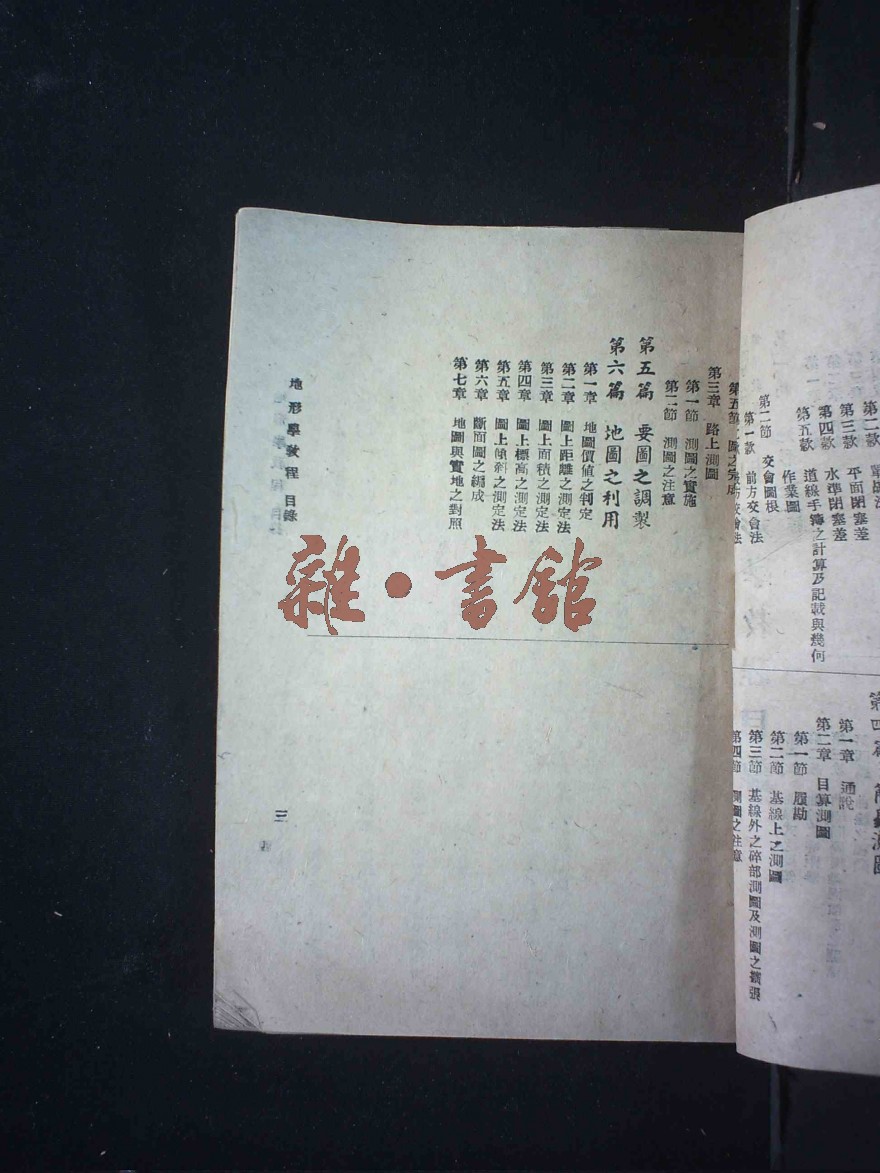 第二款
第三款 平面閉塞差
第四款 水準閉塞差
第五款 道線手簿之計算及記載與幾何
作業圖
第二節 交會圖根
第一款 前方交會法
第一章 通說
第二章 目算測圖
第一節 履勘
第二節 基線上之測圖
第三節 基線外之碎部測圖及測圖之擴張
第四節 測圖之注意
第五節
第三章 路上測圖
第一節 測圖之實施
第二節 測圖之注意
第五篇 要圖之調製
第六篇 地圖之利用
第一章 地圖價值之判定
第二章 圖上距離之測定法
第三章 圖上面積之測定法
第四章 圖上標高之測定法
第五章 圖上傾斜之測定法
第六章 斷面圖之編成
第七章 地圖與實地之對照
地形學教程 目錄
三
雜·書館